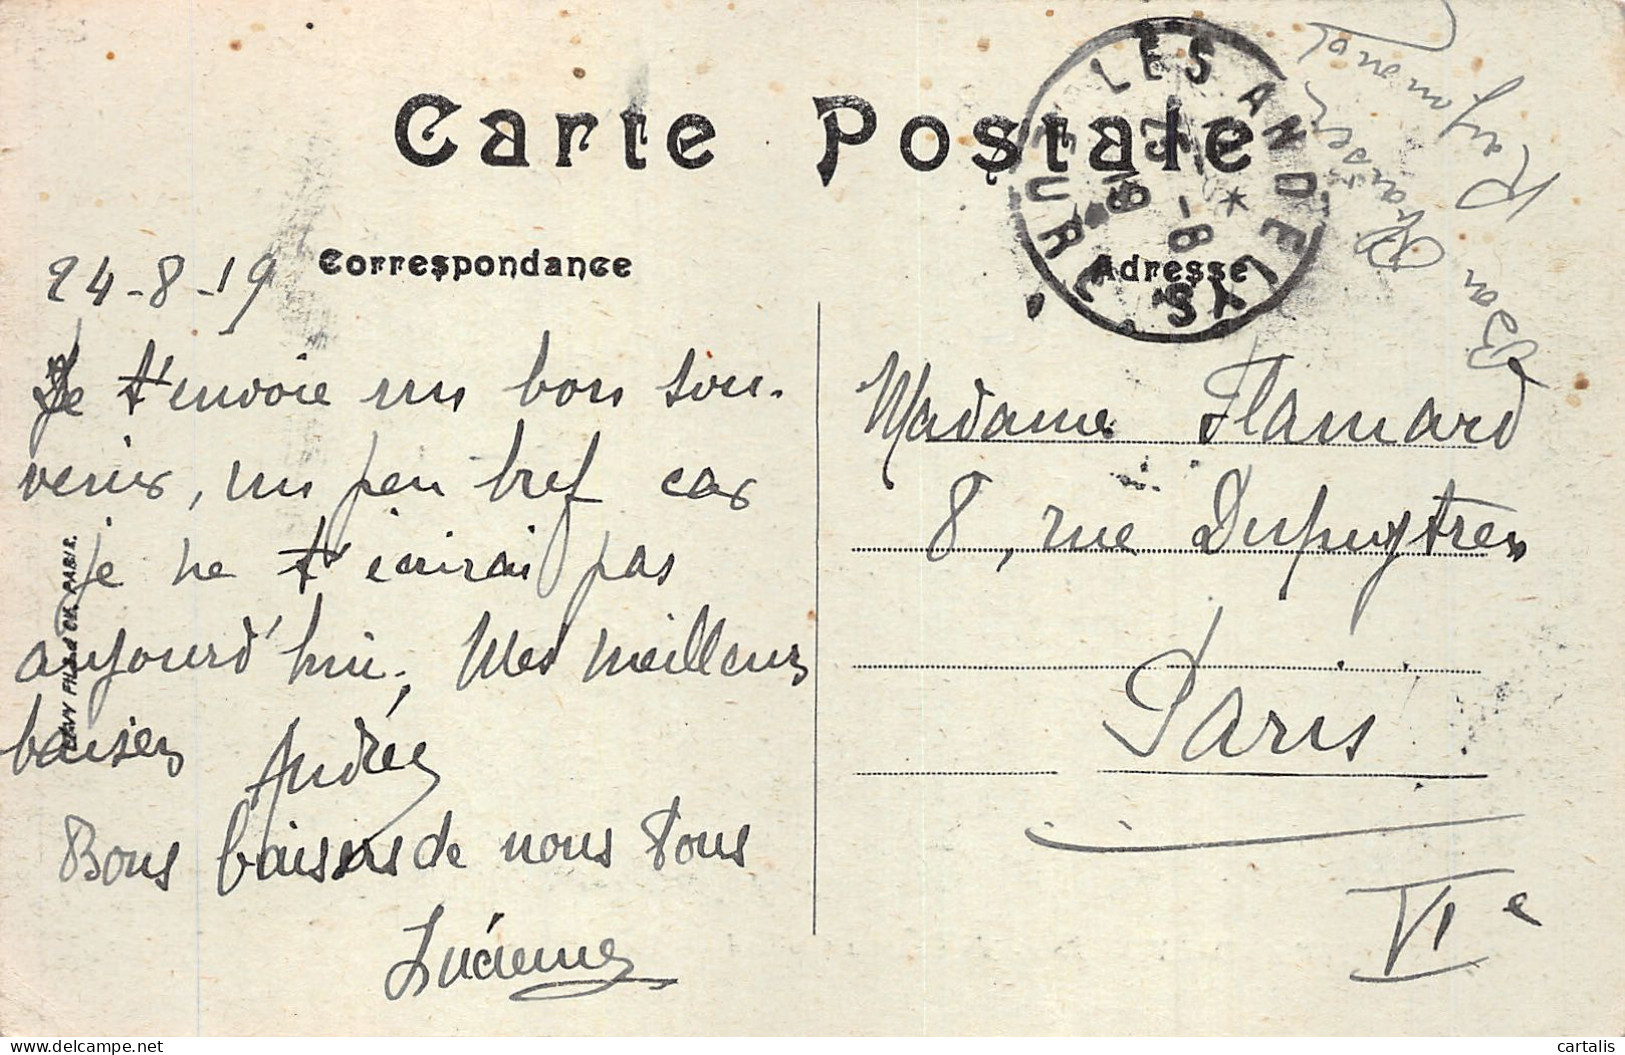 Carte Postale
Correspondance
Adresse
24-8-19
Je t'envoie un bon sou-
venir, un peu bref car
je ne t'écrirai pas
aujourd'hui. Mes meilleurs
baisers
Andrée
Bons baisers de nous tous
Lucienne
LEVY FILS et Cie. PARIS.
LES ANDELYS
EURE
Bon
Raymond
Madame Flamard
8, rue Dupuytren
Paris
VIe
cartalis
delcampe.net